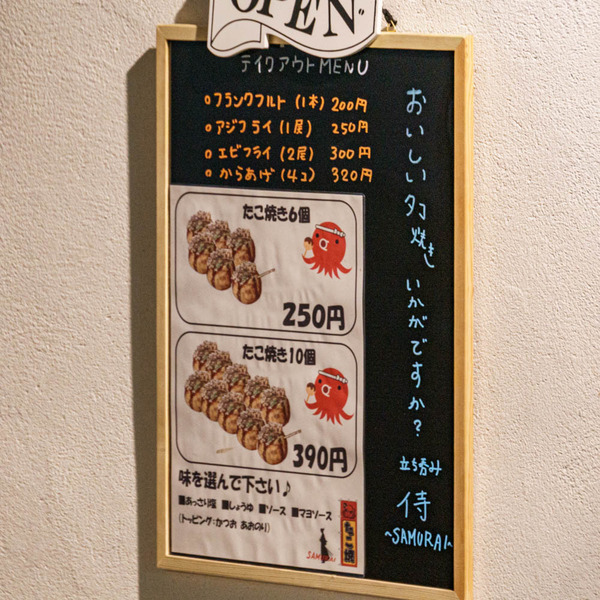 OPEN
テイクアウトMENU
フランクフルト (1本) 200円
アジフライ (1尾) 250円
エビフライ (2尾) 300円
からあげ (4コ) 320円
おいしいタコ焼きいかがですか?
立ち呑み
侍
~SAMURAI~
たこ焼き6個
250円
たこ焼き10個
390円
味を選んで下さい♪
■あっさり塩 ■しょうゆ ■ソース ■マヨソース
(トッピング:かつお あおのり)
たこ焼
SAMURAI